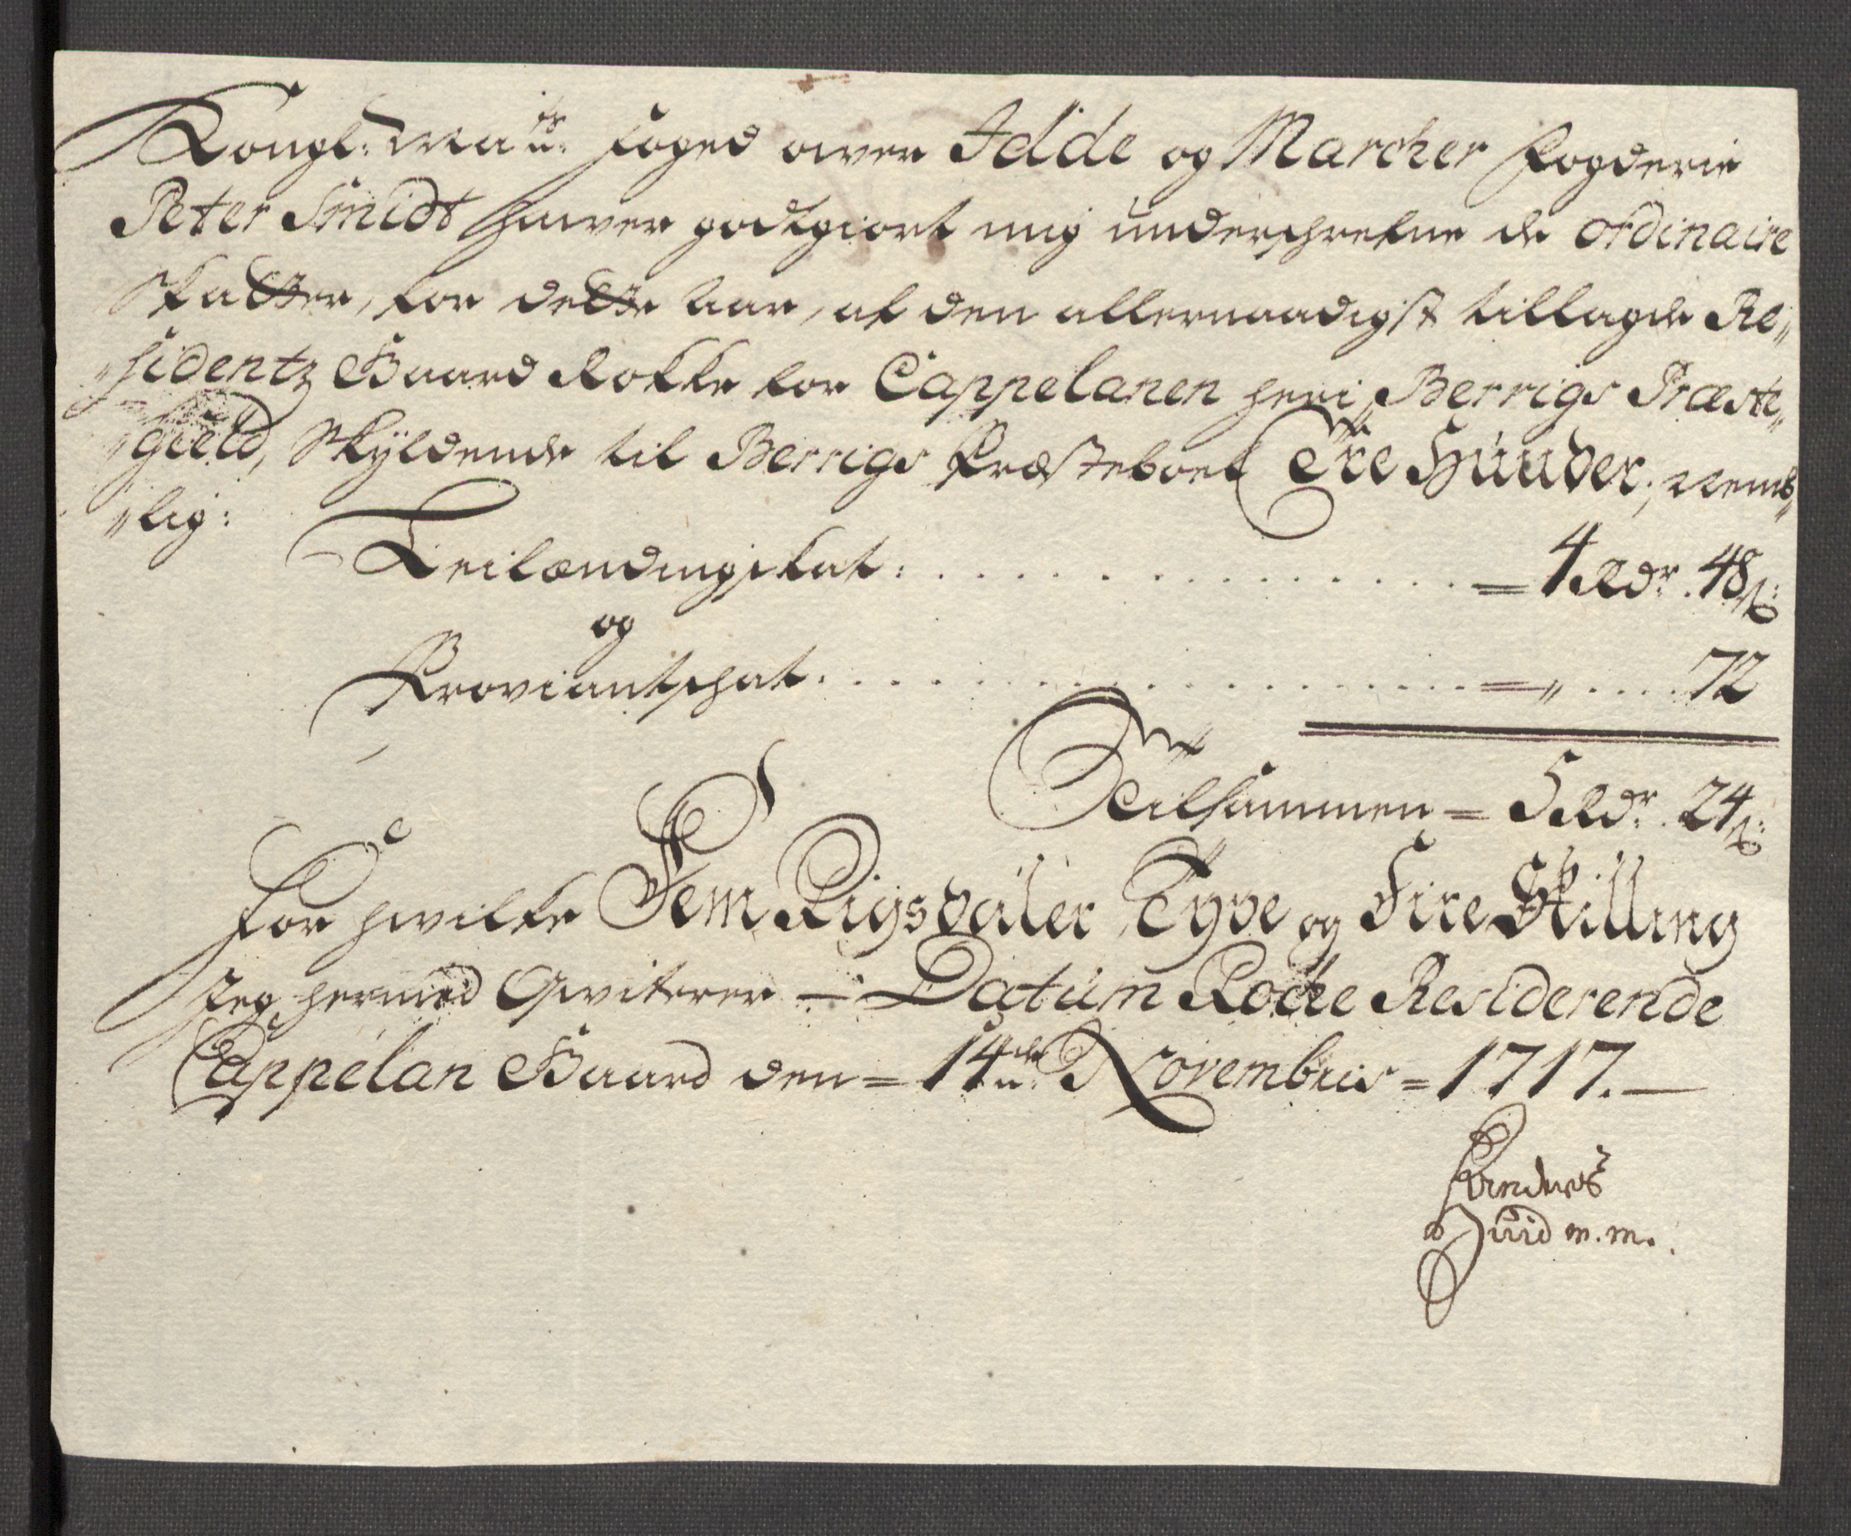 Kongl: Maÿts: foged over Idde og Marcher fogderie
Peter Smidt hawer godtgiort mig underschrefne de ordinaire
Skatter, for dette aar, af den allernaadigst tillagde Re„
„sidentz Gaard Rokke for Cappelanen her i Berrigs Præste„
„gield, Skyldende til Berrigs Præsteboel Tre Huuder, nemb„
„lig:
Leilændingskat: . . . . = 4 Rdr. 48 ß:
og
Proviantschat. . . . . = „ . . . . 72
Tilsammen = 5 Rdr. 24 ß:
For hvilke Fem Rigsdaler Tyve og Fire Skilling
Jeg hermed Qviterer — Datum Rocke Residerende
Cappelan Gaard den = 14de Novembris = 1717. —
Anders
Juid m. m.